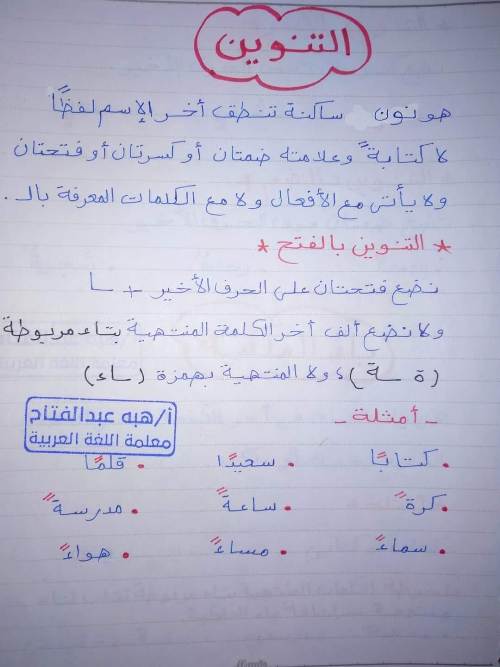 التنوين
هو نون ساكنة تنطق أخر الإسم لفظًا
لا كتابةً وعلامته ضمتان أو كسرتان أو فتحتان
ولا يأتى مع الأفعال ولا مع الكلمات المعرفة بالـ.
* التنوين بالفتح *
نضع فتحتان على الحرف الأخير + ـا
ولا نضع ألف أخر الكلمة المنتهية بتاء مربوطة
(ة ـة) ، ولا المنتهية بهمزة (ـاء)
- أمثلة -
أ/هبه عبدالفتاح
معلمة اللغة العربية
• كتابًا • سعيدًا • قلمًا
• كرةً • ساعةً • مدرسةً
• سماءً • مساءً • هواءً